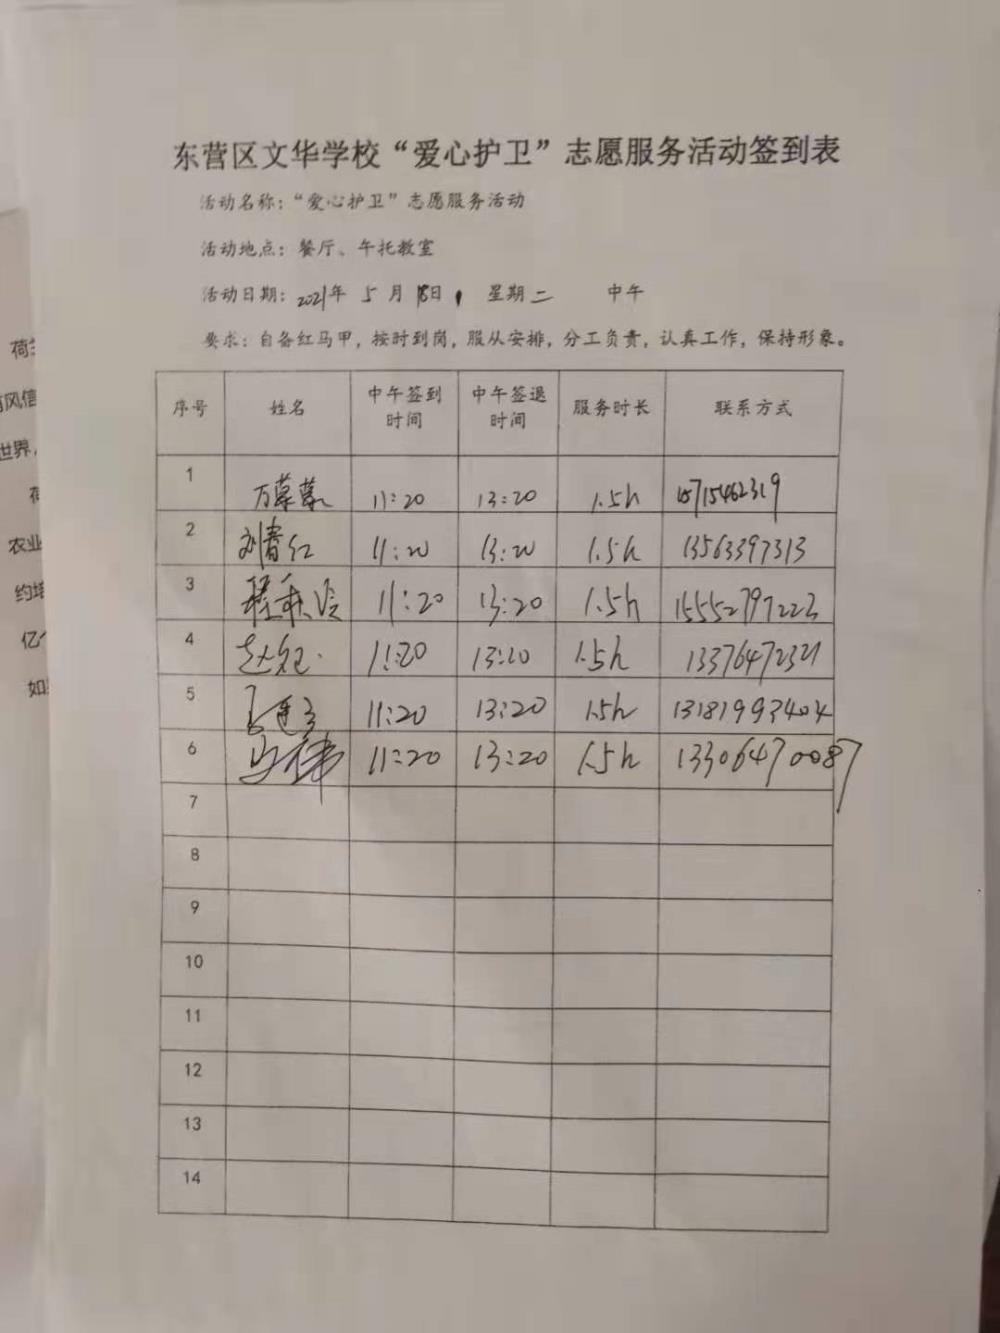 东营区文华学校“爱心护卫”志愿服务活动签到表
活动名称：“爱心护卫”志愿服务活动
活动地点：餐厅、午托教室
活动日期：2021年 5 月 18日， 星期二 中午
要求：自备红马甲，按时到岗，服从安排，分工负责，认真工作，保持形象。
序号 姓名 中午签到时间 中午签退时间 服务时长 联系方式
1 11:20 13:20 1.5h 15715462319
2 刘春红 11:20 13:20 1.5h 13563397313
3 11:20 13:20 1.5h 15552797223
4 11:20 13:20 1.5h 13376472321
5 11:20 13:20 1.5h 13181993404
6 马伟 11:20 13:20 1.5h 13306470087
7
8
9
10
11
12
13
14
荷
风信
世界，
荷
农业
约培
亿个
如